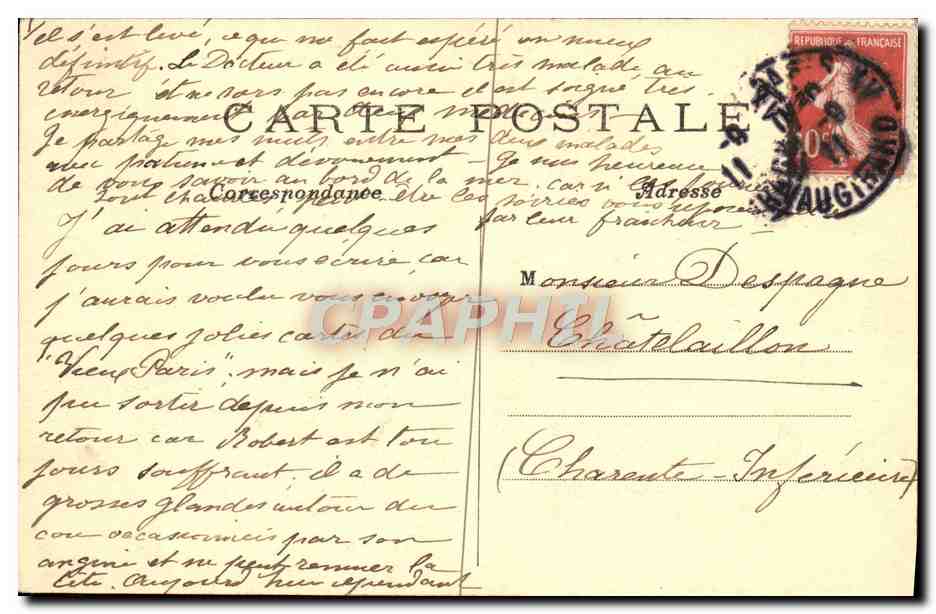 J'ai attendu quelques
jours pour vous écrire car
j'aurais voulu vous envoyer
quelques jolies cartes du
"Vieux Paris", mais je n'ai
pu sortir depuis mon
retour car Robert est tou
jours souffrant, il a de
grosses glandes autour du
cou occasionnées par son
angine et ne peut remuer la
tête. Aujourd'hui cependant
il s'est levé, ce qui me fait espérer un mieux
définitif. Le Docteur a été aussi très malade au
retour et ne sors pas encore il est soigné très
énergiquement par deux
Je partage mes nuits entre mes deux malades
avec patience et dévouement - Je suis heureuse
de vous savoir au bord de la mer, car si
sont chaudes, peut être les soirées vous
par leur fraîcheur.
CARTE POSTALE
Correspondance
Adresse
REPUBLIQUE FRANÇAISE
PARIS XV
VAUGIRARD
Monsieur Despagne
Châtelaillon
(Charente-Inférieure)
CPAPHIL